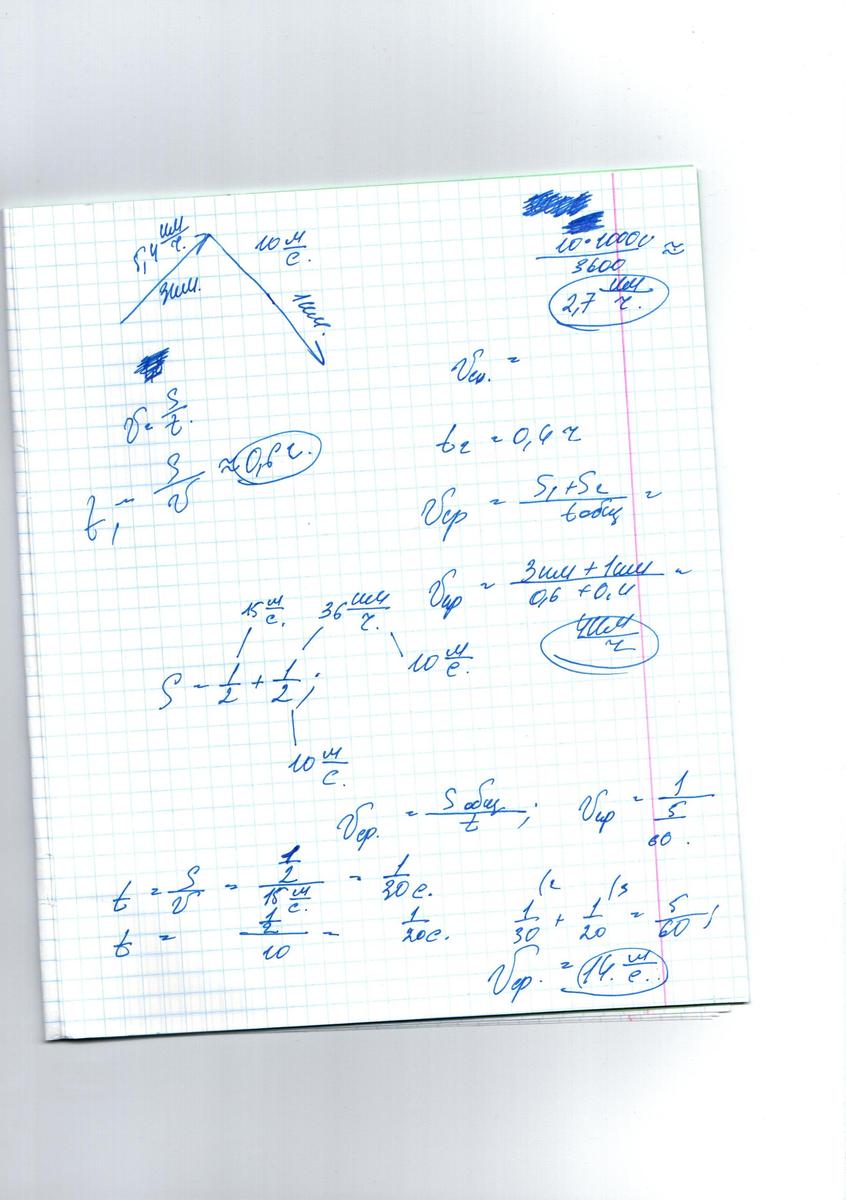 5,4 км/ч.
3км.
10 м/с.
1км.
10·1000/3600 ≈
2,7 км/ч.
v = S/t.
t₁ = S/v ≈ 0,6 ч.
vср. =
t₂ = 0,4 ч
vср = (S₁+S₂)/tобщ =
vср = (3км + 1км)/(0,6 + 0,4) =
4км/ч
15 м/с.
36 км/ч.
10 м/с.
S = 1/2 + 1/2;
10 м/с.
vср. = Sобщ/t;
vср = 1/(5/60).
t = S/v = (1/2)/(15 м/с.) = 1/30 с.
t = (1/2)/10 = 1/20 с.
1/30 (2 + 1/20 (3 = 5/60;
vср. = 14. м/с.